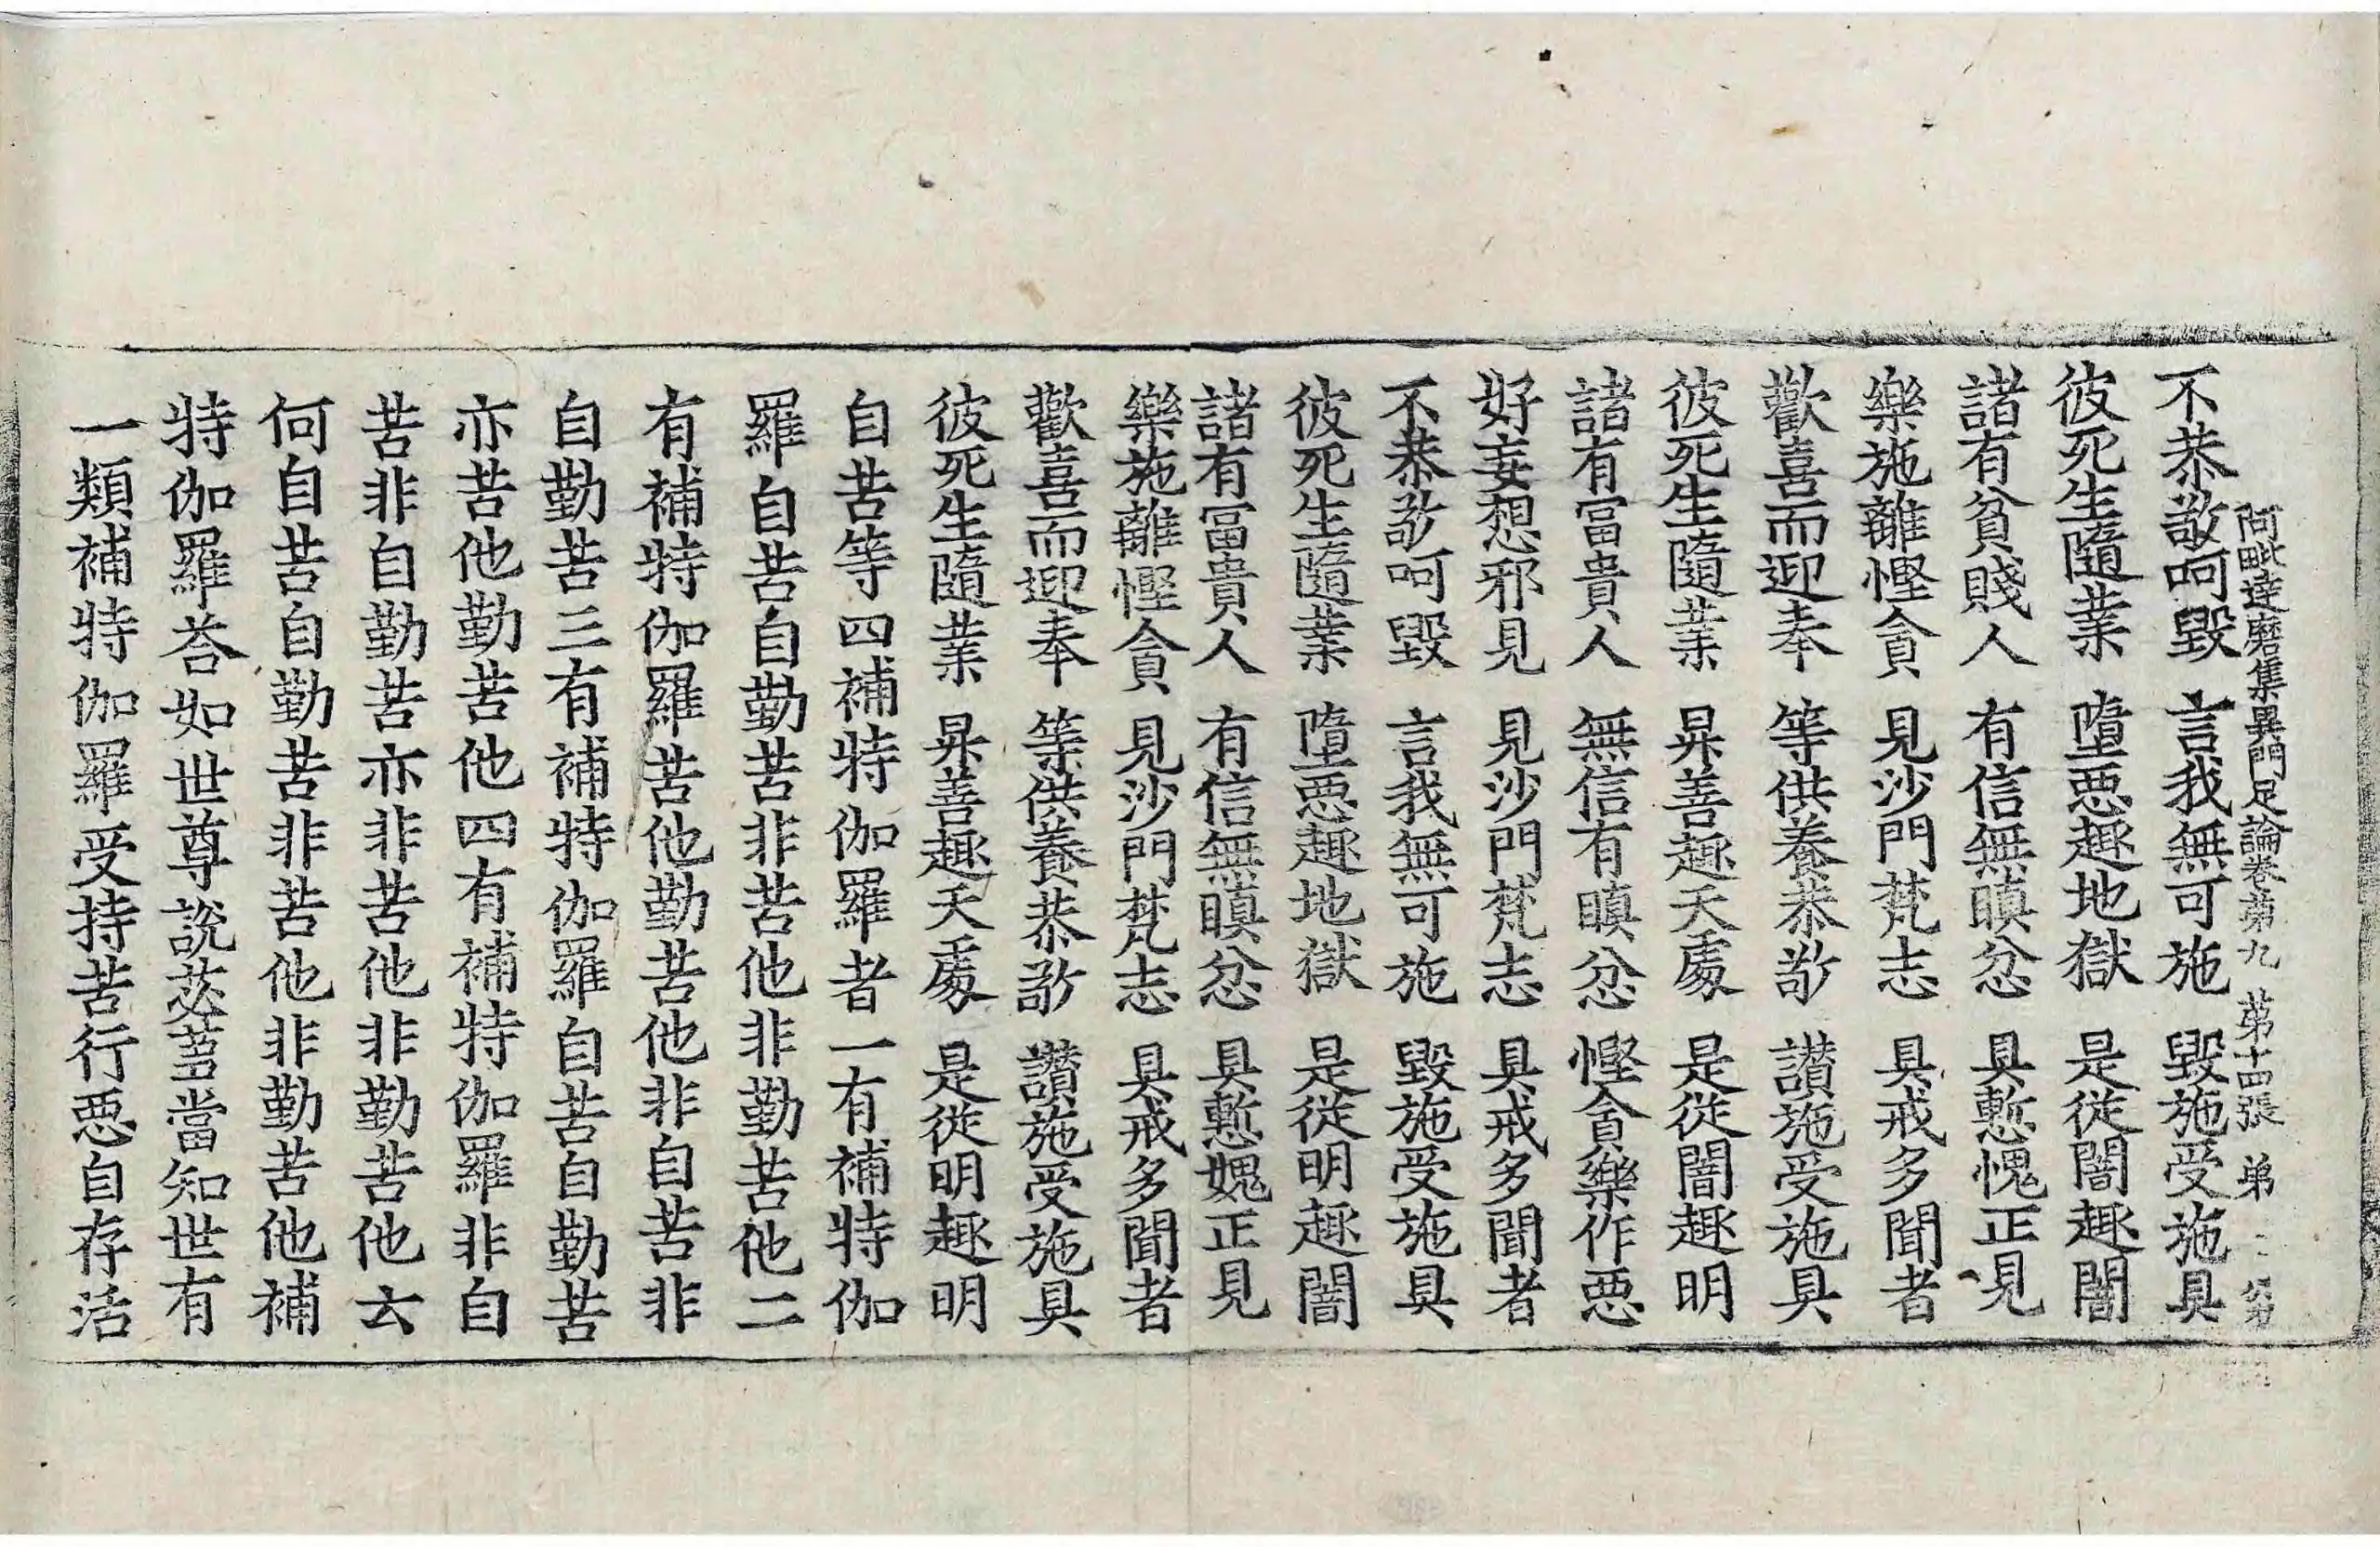 阿毗達磨集異門足論卷苐九 苐十四張 弟
不恭敬呵毀 言我無可施 毀施受施具
彼死生隨業 墮惡趣地獄 是從闇趣闇
諸有貧賤人 有信無瞋忿 具慙愧正見
樂施離慳貪 見沙門梵志 具戒多聞者
歡喜而迎奉 等供養恭敬 讃施受施具
彼死生隨業 昇善趣天處 是從闇趣明
諸有冨貴人 無信有瞋忿 慳貪樂作惡
好妄想邪見 見沙門梵志 具戒多聞者
不恭敬呵毀 言我無可施 毀施受施具
彼死生隨業 墮惡趣地獄 是從明趣闇
諸有冨貴人 有信無瞋忿 具慙媿正見
樂施離慳貪 見沙門梵志 具戒多聞者
歡喜而迎奉 等供養恭敬 讃施受施具
彼死生隨業 昇善趣天處 是從明趣明
自苦等四補特伽羅者一有補特伽
羅自苦自勤苦非苦他非勤苦他二
有補特伽羅苦他勤苦他非自苦非
自勤苦三有補特伽羅自苦自勤苦
亦苦他勤苦他四有補特伽羅非自
苦非自勤苦亦非苦他非勤苦他云
何自苦自勤苦非苦他非勤苦他補
特伽羅荅如世尊說苾蒭當知世有
一類補特伽羅受持苦行惡自存活